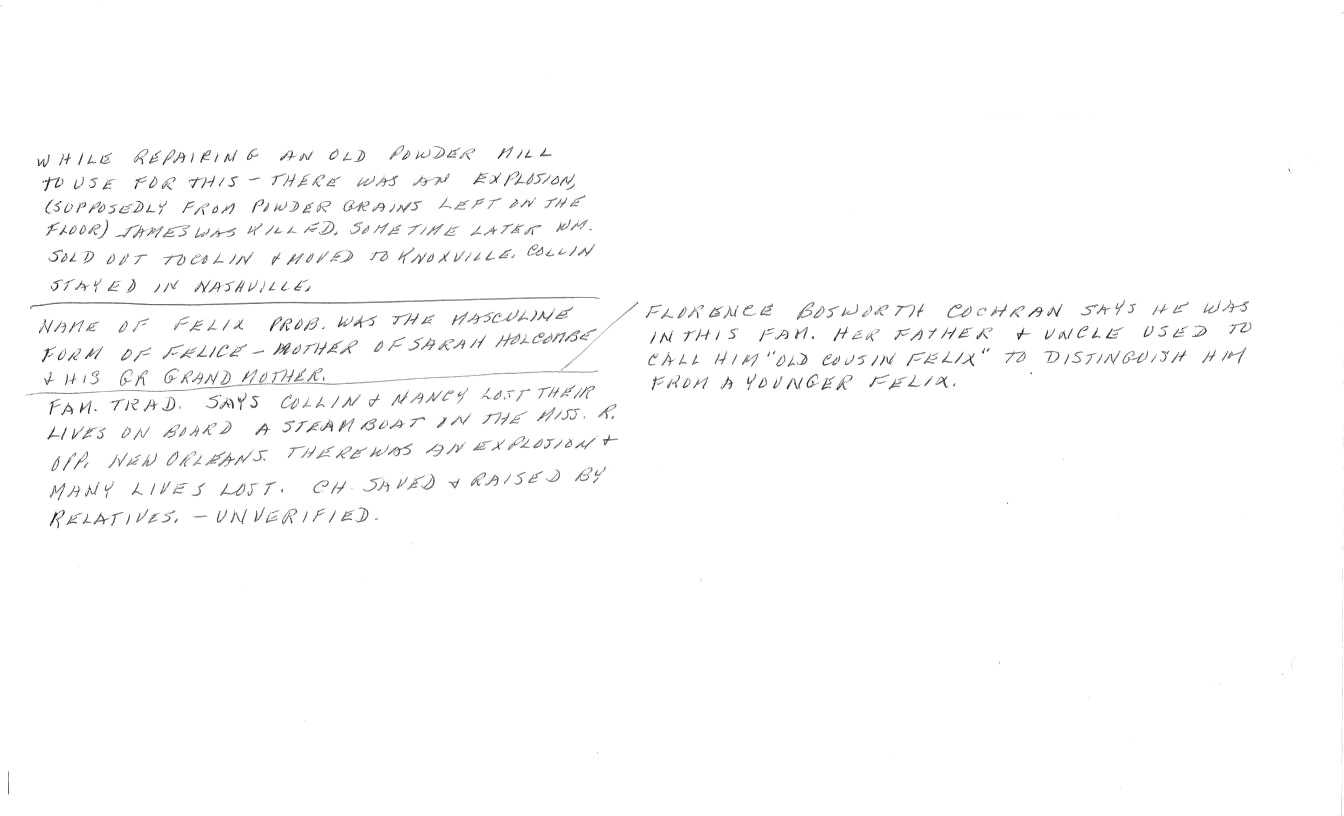 WHILE REPAIRING AN OLD POWDER MILL
TO USE FOR THIS - THERE WAS AN EXPLOSION,
(SUPPOSEDLY FROM POWDER GRAINS LEFT ON THE
FLOOR) JAMES WAS KILLED. SOMETIME LATER WM.
SOLD OUT TO COLIN & MOVED TO KNOXVILLE. COLLIN
STAYED IN NASHVILLE.
NAME OF FELIX PROB. WAS THE MASCULINE
FORM OF FELICE - MOTHER OF SARAH HOLCOMBE
& HIS GR GRAND MOTHER.
FLORENCE BOSWORTH COCHRAN SAYS HE WAS
IN THIS FAM. HER FATHER & UNCLE USED TO
CALL HIM "OLD COUSIN FELIX" TO DISTINGUISH HIM
FROM A YOUNGER FELIX.
FAM. TRAD. SAYS COLLIN & NANCY LOST THEIR
LIVES ON BOARD A STEAMBOAT ON THE MISS. R.
OPP. NEW ORLEANS. THERE WAS AN EXPLOSION &
MANY LIVES LOST. CH. SAVED & RAISED BY
RELATIVES. - UNVERIFIED.